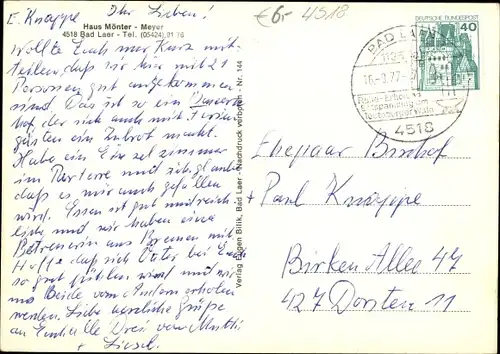 E. Knappe Ihr Lieben!
Haus Mönter - Meyer
4518 Bad Laer - Tel. (05424) 91 76
Wollte Euch nur kurz mit-
teilen, daß wir hier mit 21
Personen gut angekommen
sind. Das ist so ein
hof der sich auch mit Ferien-
gästen ein Zubrot macht.
Habe ein Einzelzimmer
im Parterre und ich glaube
daß es mir auch gefallen
wird. Essen ist gut und reich-
lich und wir haben eine
Betreuerin aus Bremen mit.
Hoffe daß sich Vater bei Euch
so gut fühlen wird und wir
uns Beide vom Andern erholen
werden. Liebe herzliche Grüße
an Euch alle Drei von Mutti
+ Liesel.
Verlag Eugen Billik, Bad Laer - Nachdruck verboten - Nr. 144
€6,- 4518
BAD LAER
16.-8.77
4518
DEUTSCHE BUNDESPOST
40
Ehepaar Bischof
+ Paul Knappe
Birken Allee 47
427 Dorsten 11